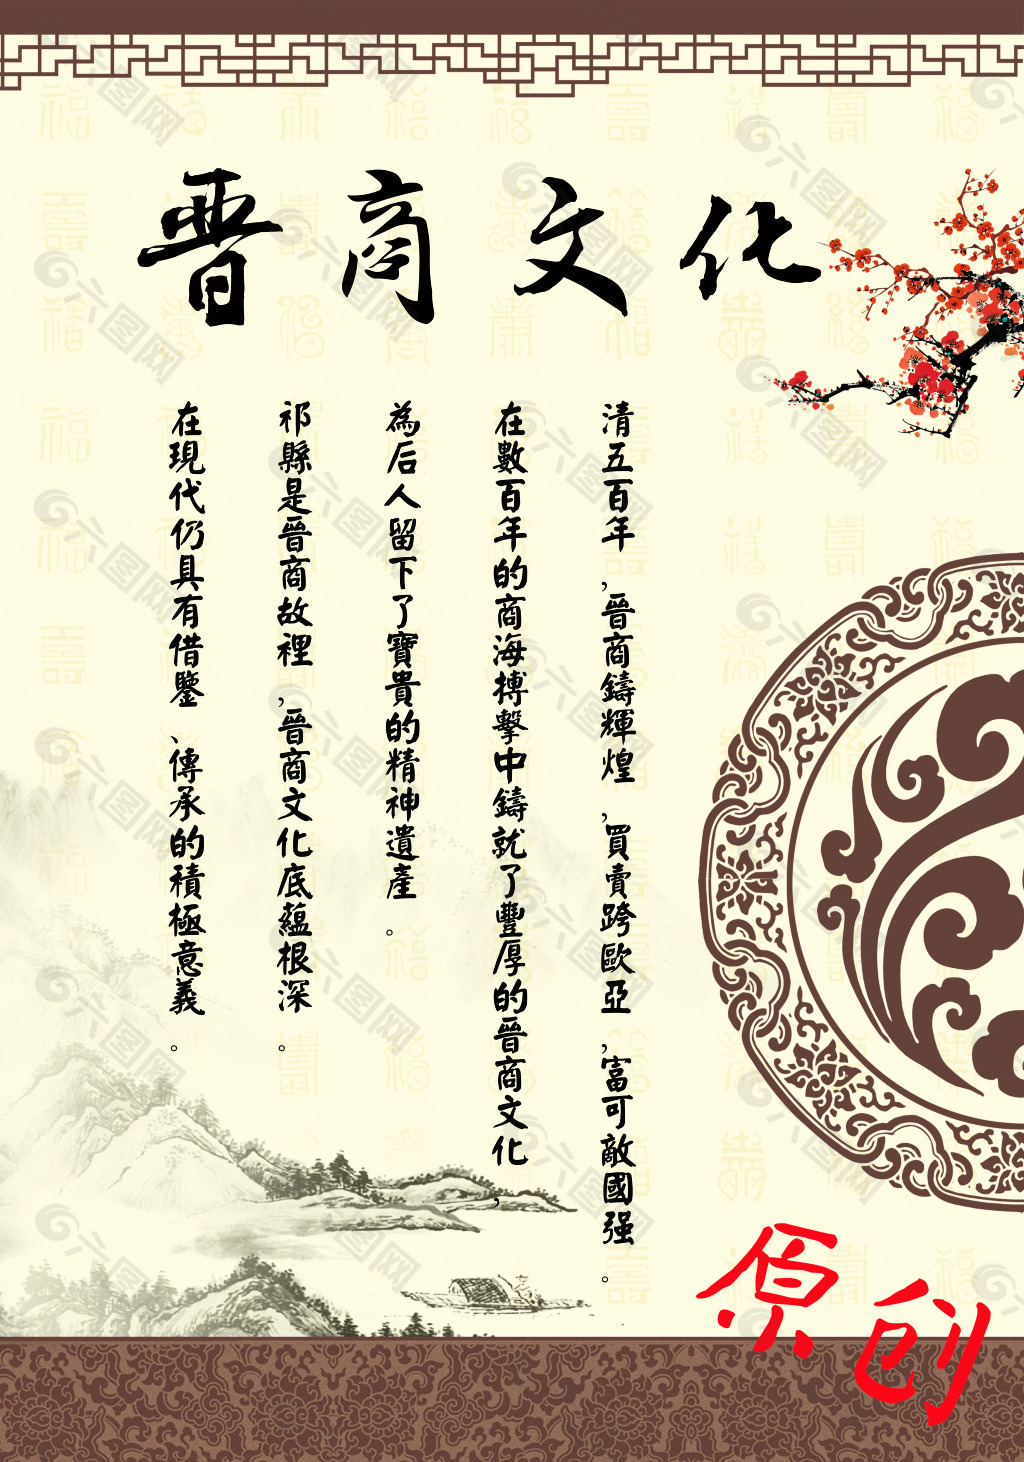 晋商文化
清五百年,晋商鑄輝煌,買賣跨歐亞,富可敵國强。
在數百年的商海搏擊中鑄就了豐厚的晋商文化,
為后人留下了寶貴的精神遺產。
祁縣是晋商故裡,晋商文化底蘊根深。
在現代仍具有借鑒、傳承的積極意義。
原创
六图网